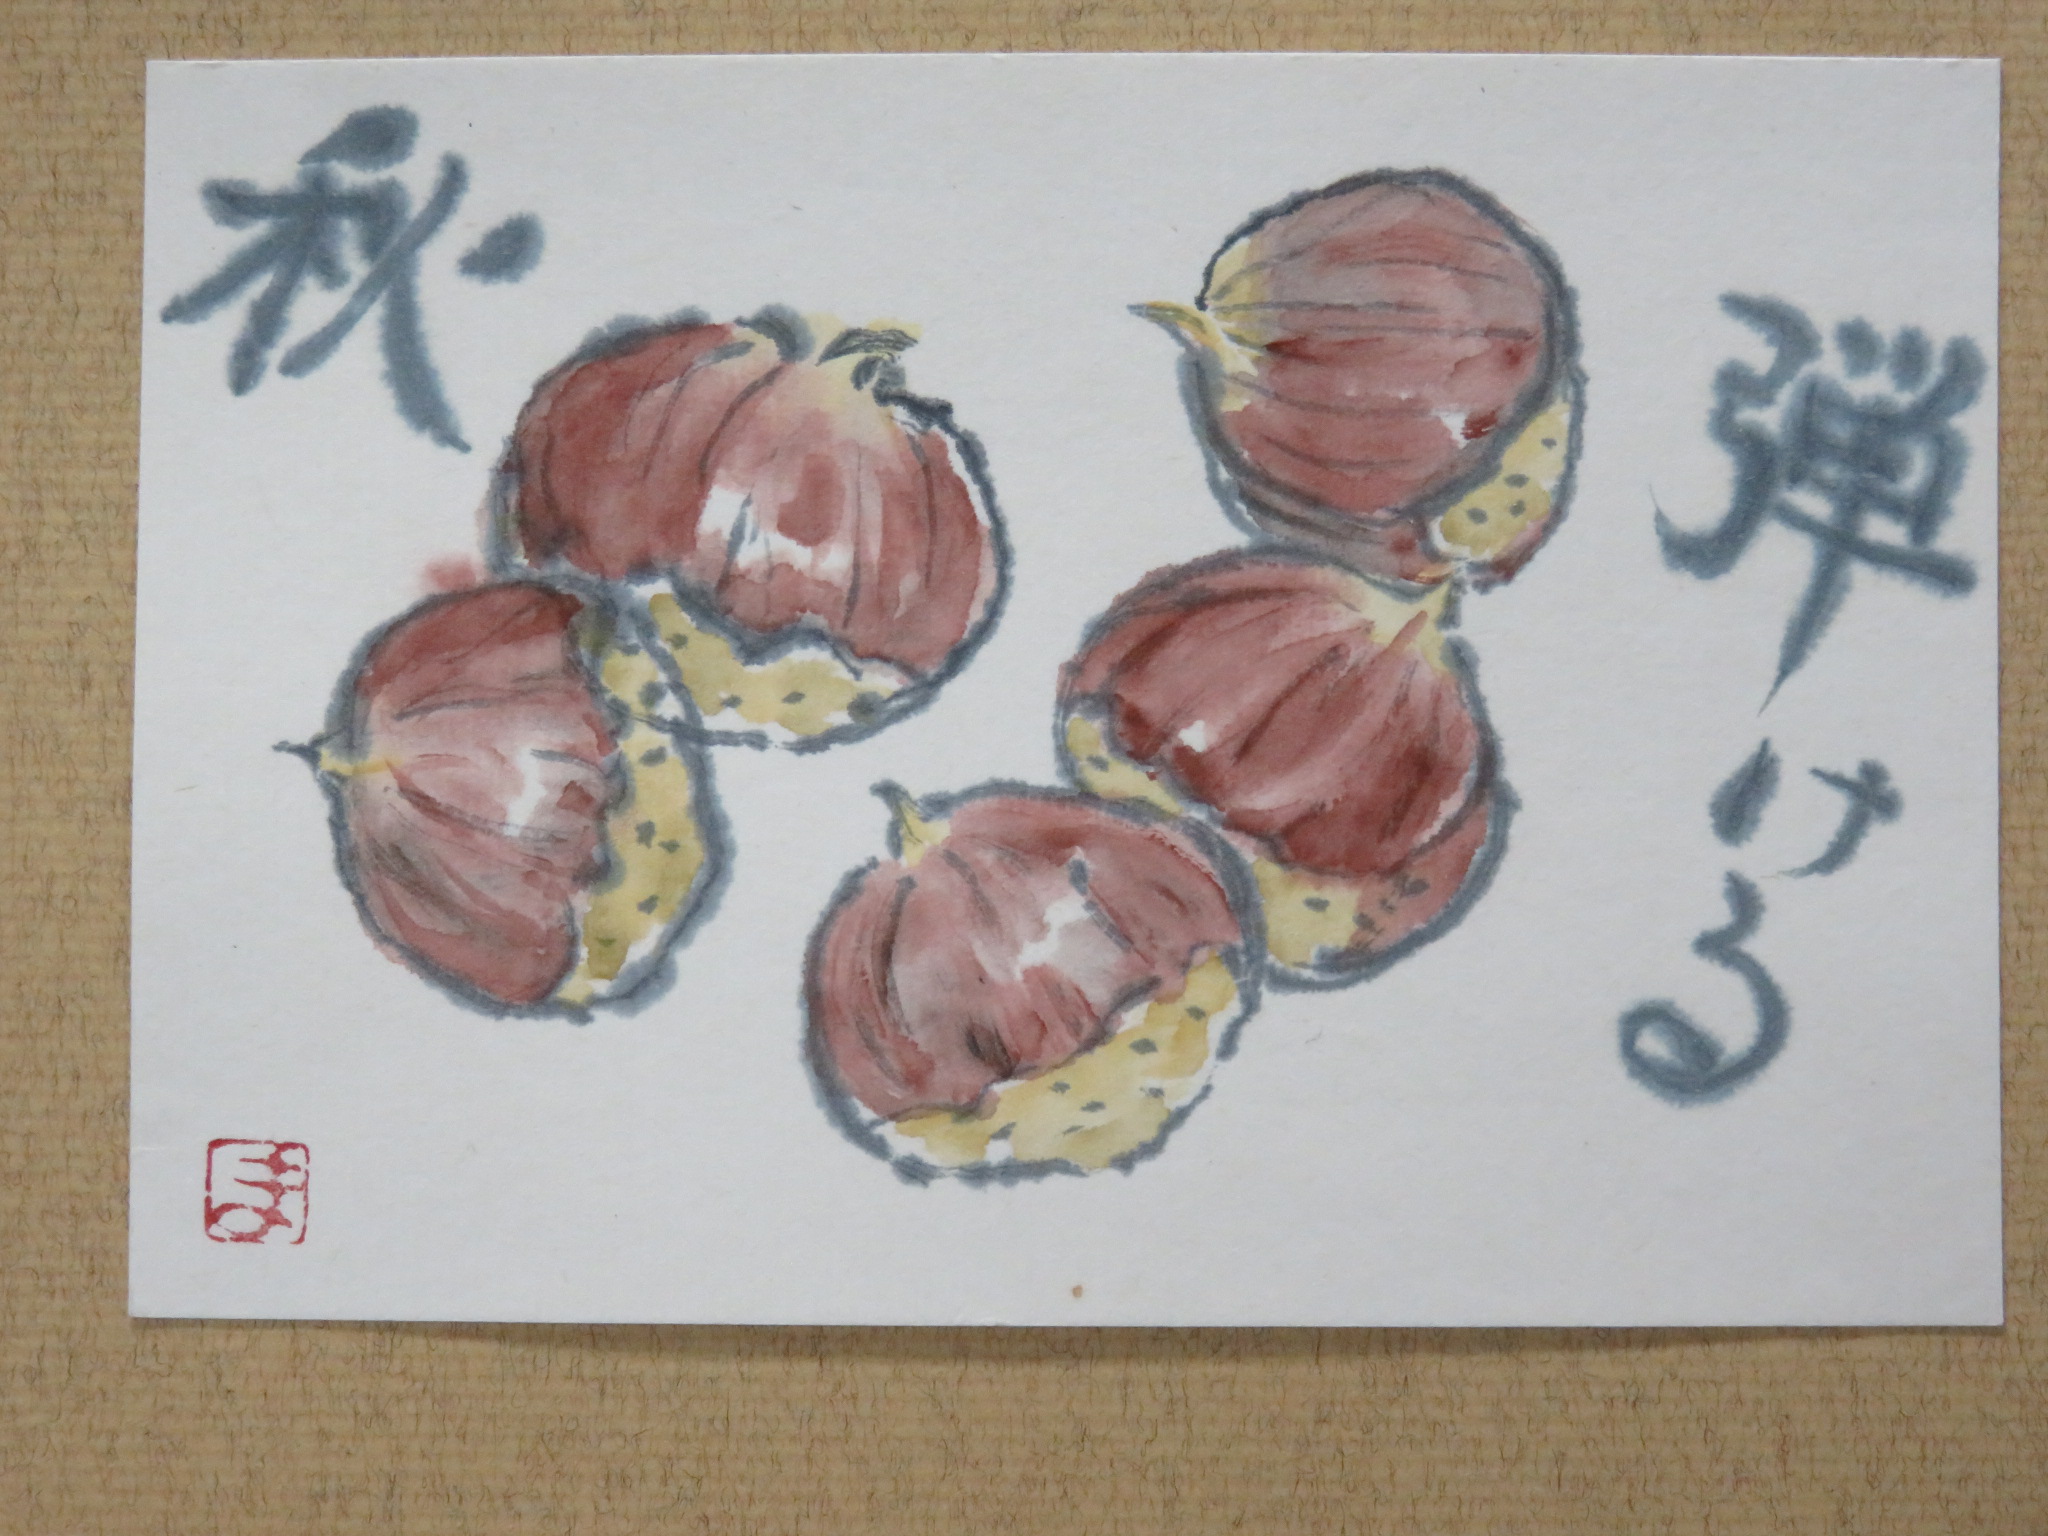 弾ける
秋